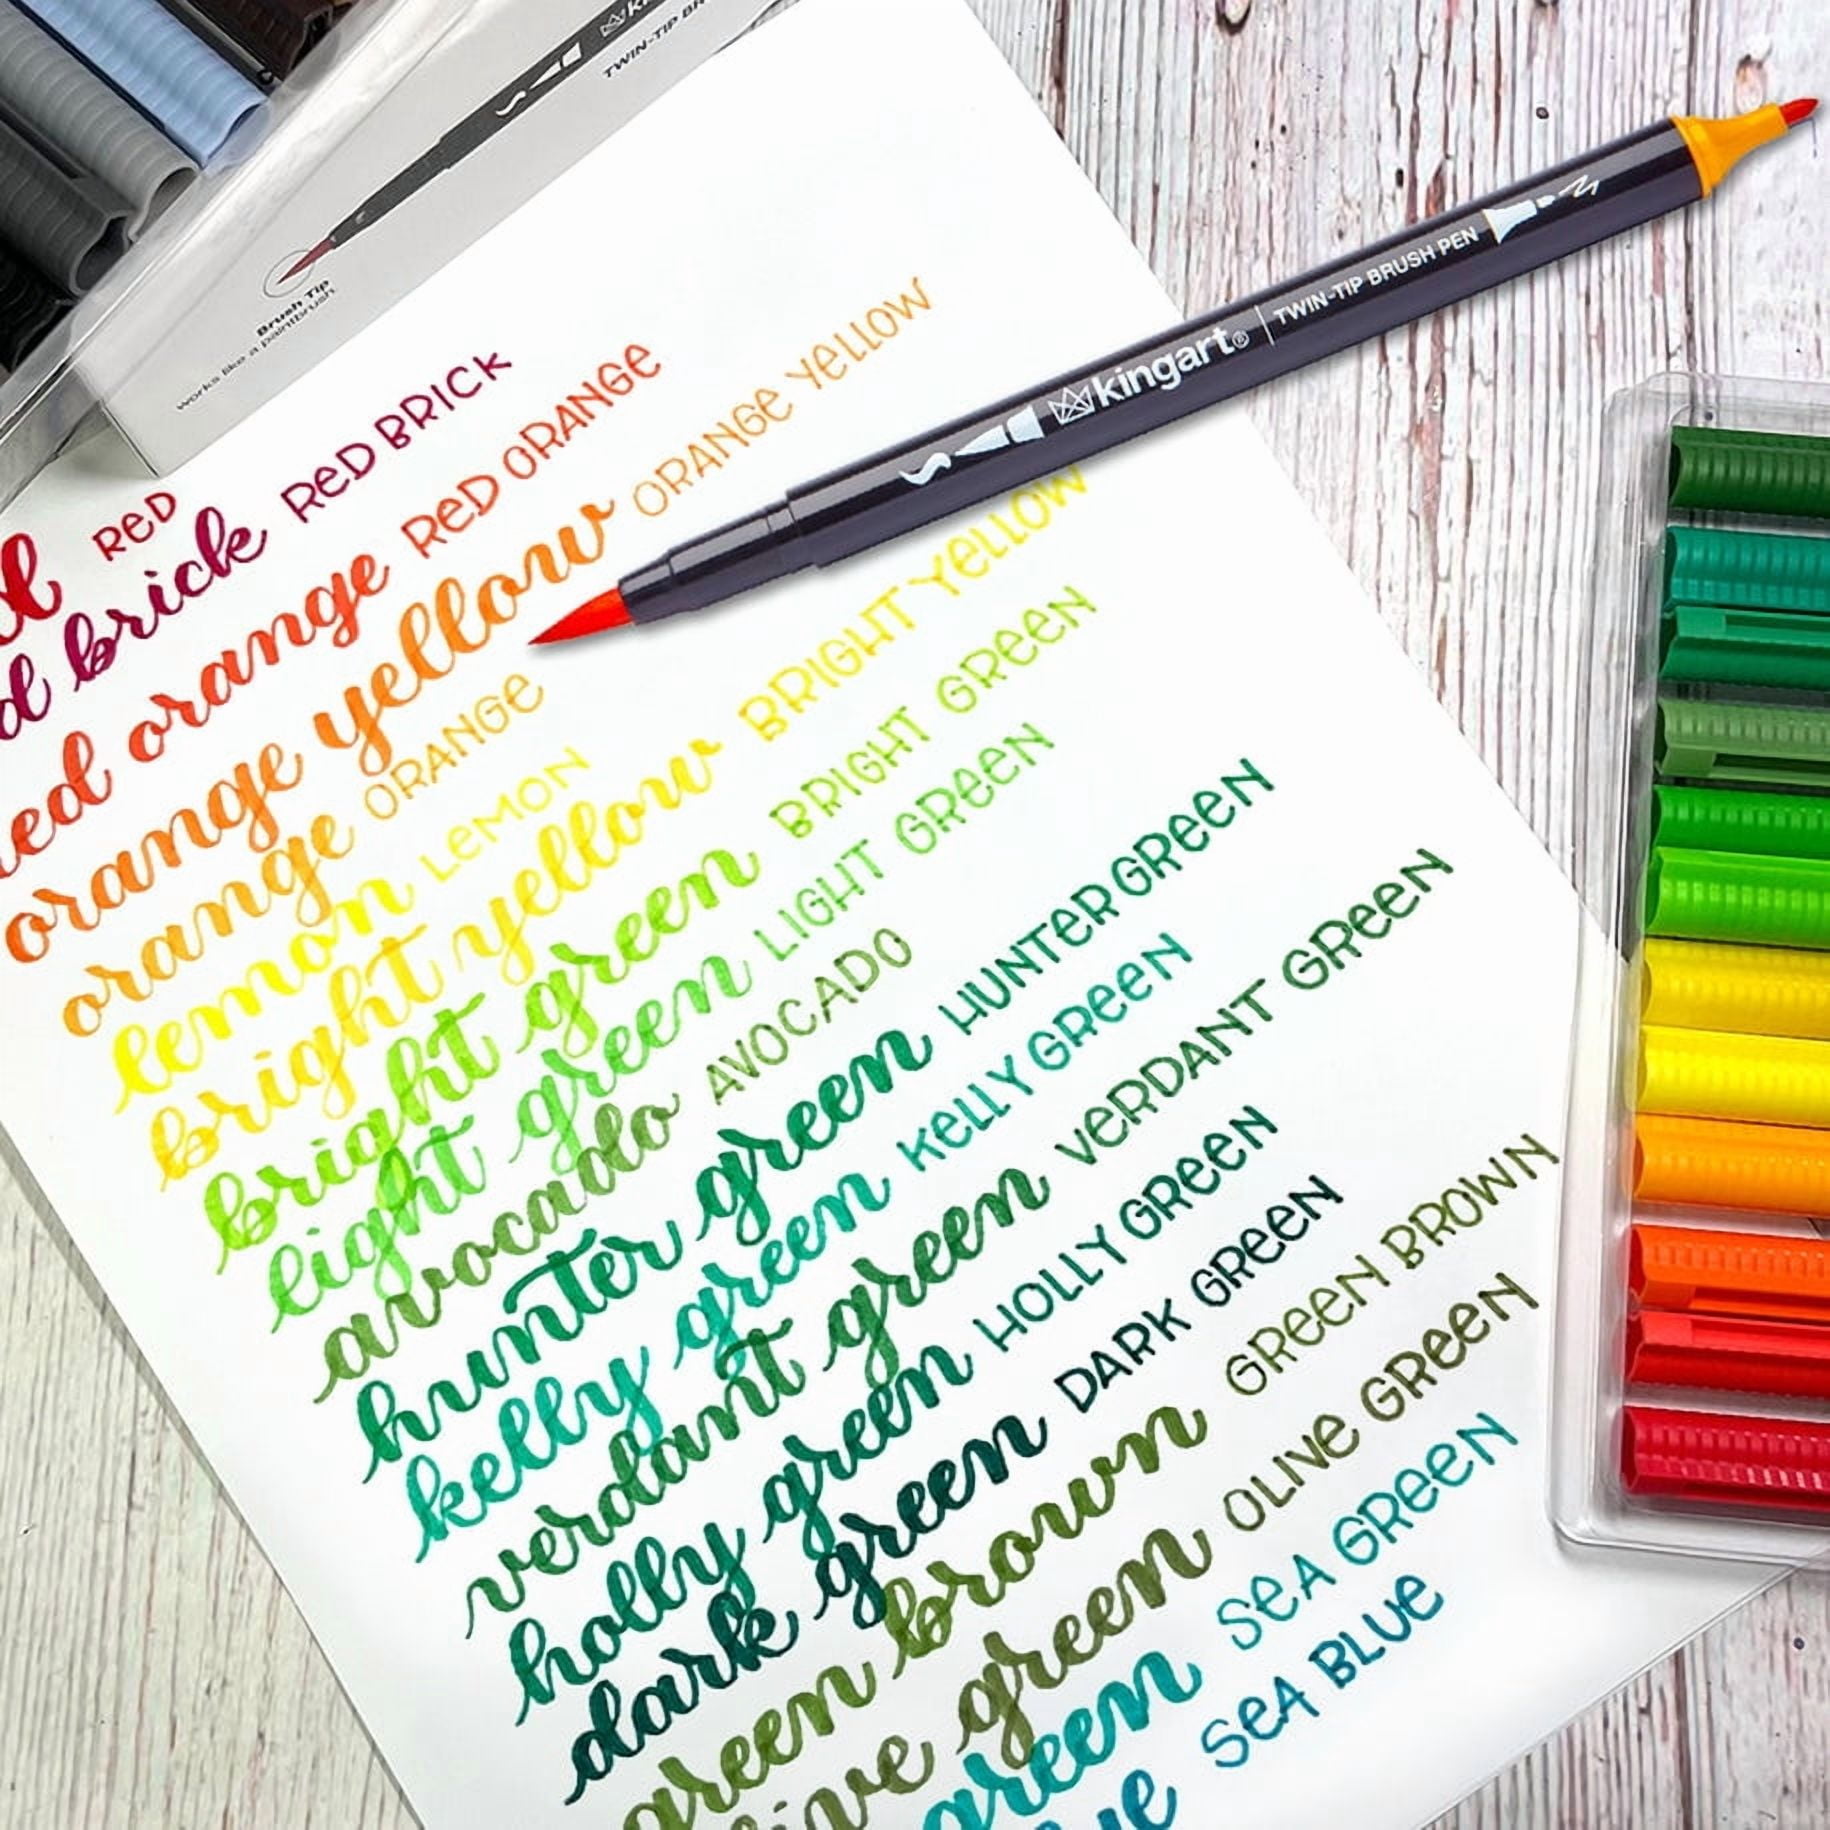 kingart® | TWIN-TIP BRUSH PEN
TWIN-TIP
Brush Tip
Works like a paintbrush
RED
brick RED BRICK
red orange RED ORANGE
orange yellow ORANGE YELLOW
orange ORANGE
lemon LEMON
bright yellow BRIGHT YELLOW
bright green BRIGHT GREEN
light green LIGHT GREEN
avocado AVOCADO
hunter green HUNTER GREEN
kelly green KELLY GREEN
verdant green VERDANT GREEN
holly green HOLLY GREEN
dark green DARK GREEN
green brown GREEN BROWN
olive green OLIVE GREEN
green SEA GREEN
SEA BLUE